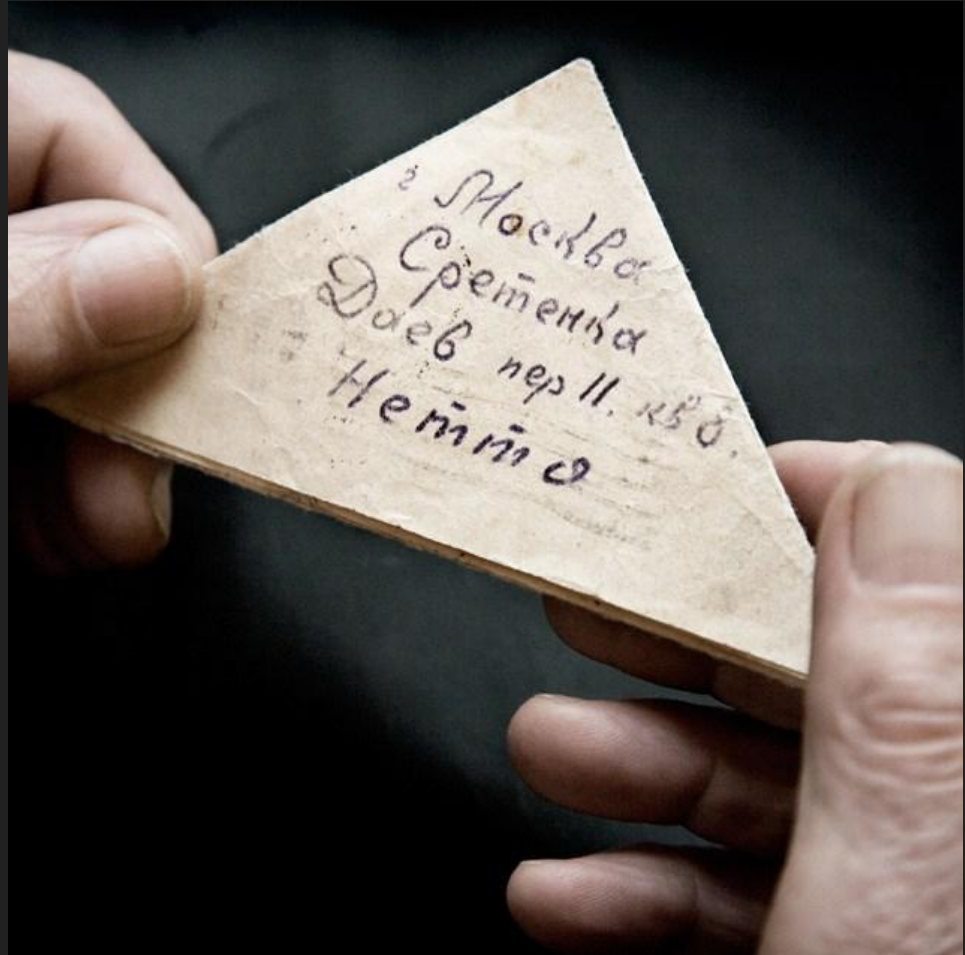 г Москва
Сретенка
Даев пер 11. кв 8.
Нетто